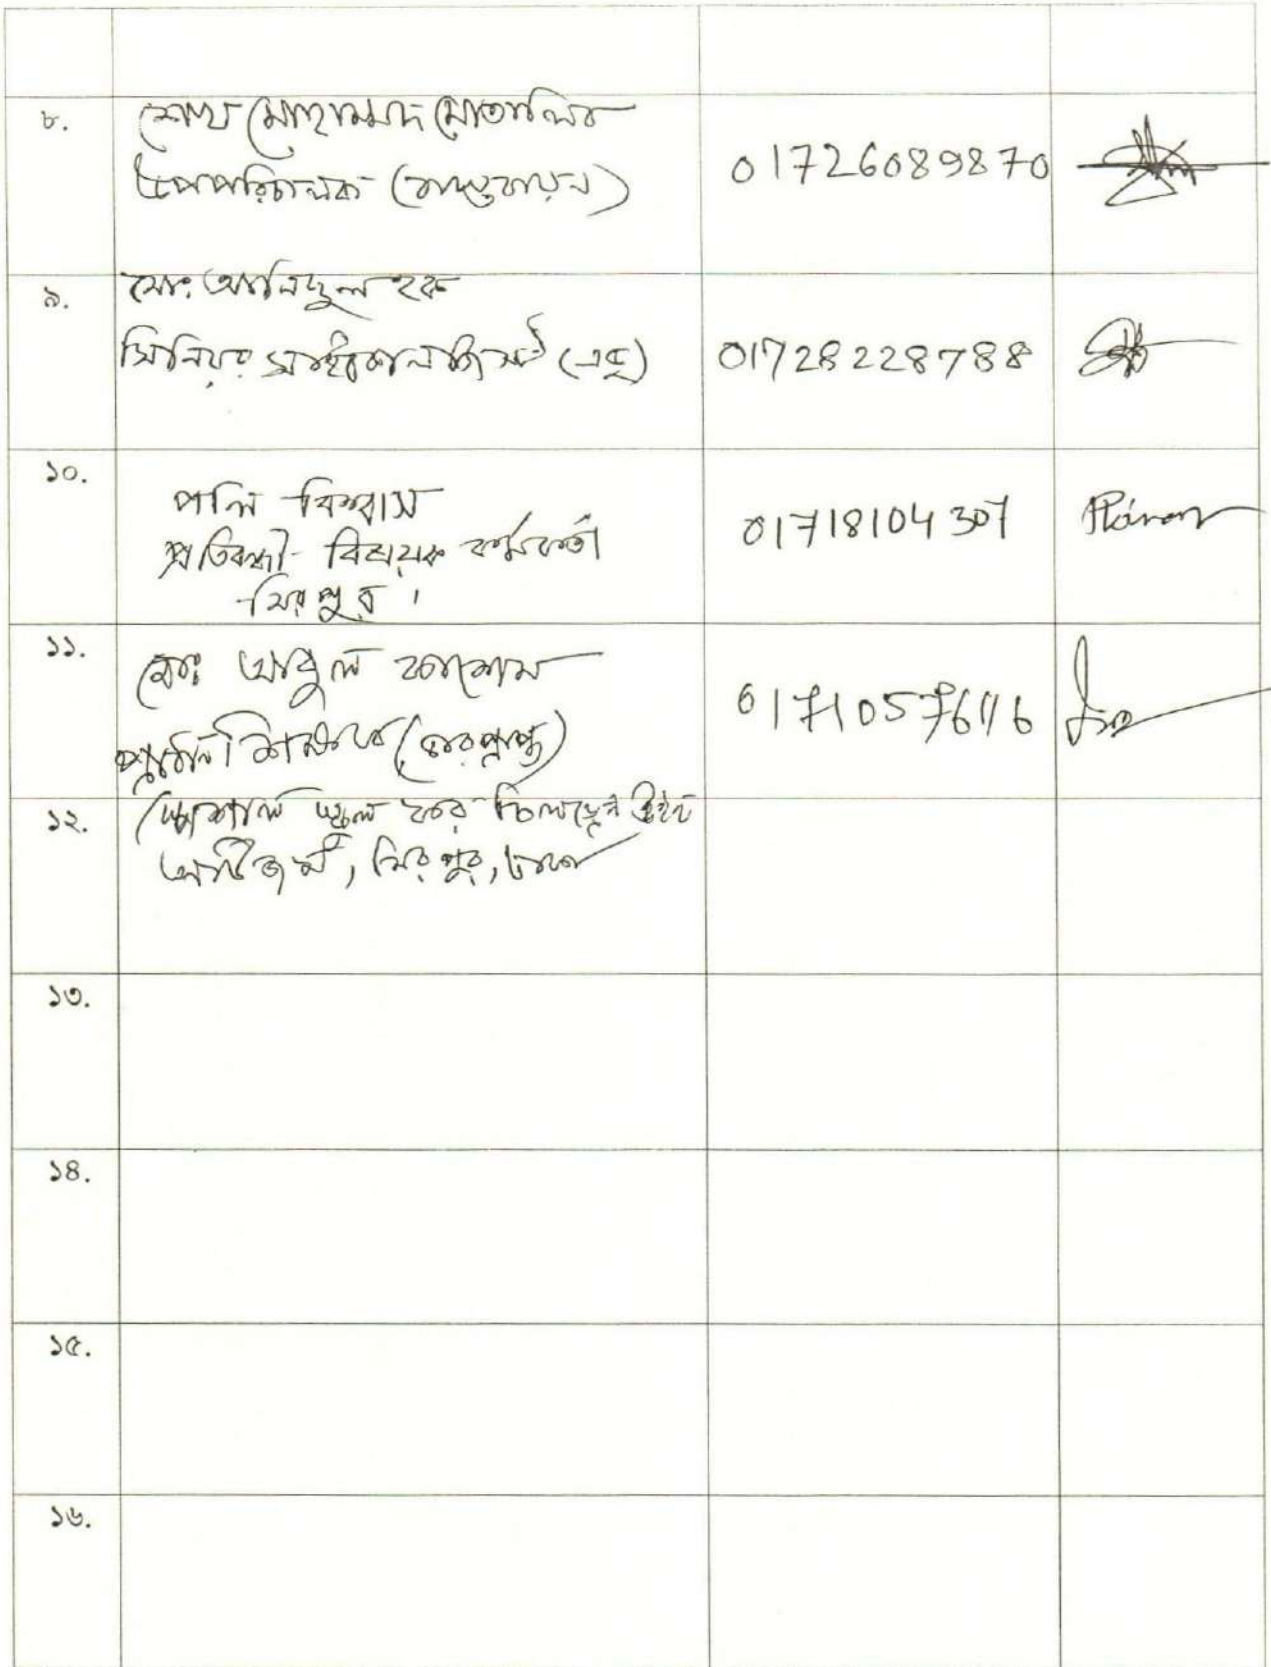 ৮.
শেখ মোহাম্মদ মোতালিব
উপপরিচালক (বাস্তবায়ন)
01726089870
৯.
মোঃ আনিছুল হক
সিনিয়র সাইকোলজিস্ট (এঃ)
01728228788
১০.
পলি বিশ্বাস
প্রতিবন্ধী বিষয়ক কর্মকর্তা
মিরপুর।
01718104307
১১.
মোঃ আবুল কাশেম
প্রধান শিক্ষক (ভারপ্রাপ্ত)
01710577616
১২.
স্পেশাল স্কুল ফর চিলড্রেন উইথ
অটিজম, মিরপুর, ঢাকা
১৩.
১৪.
১৫.
১৬.